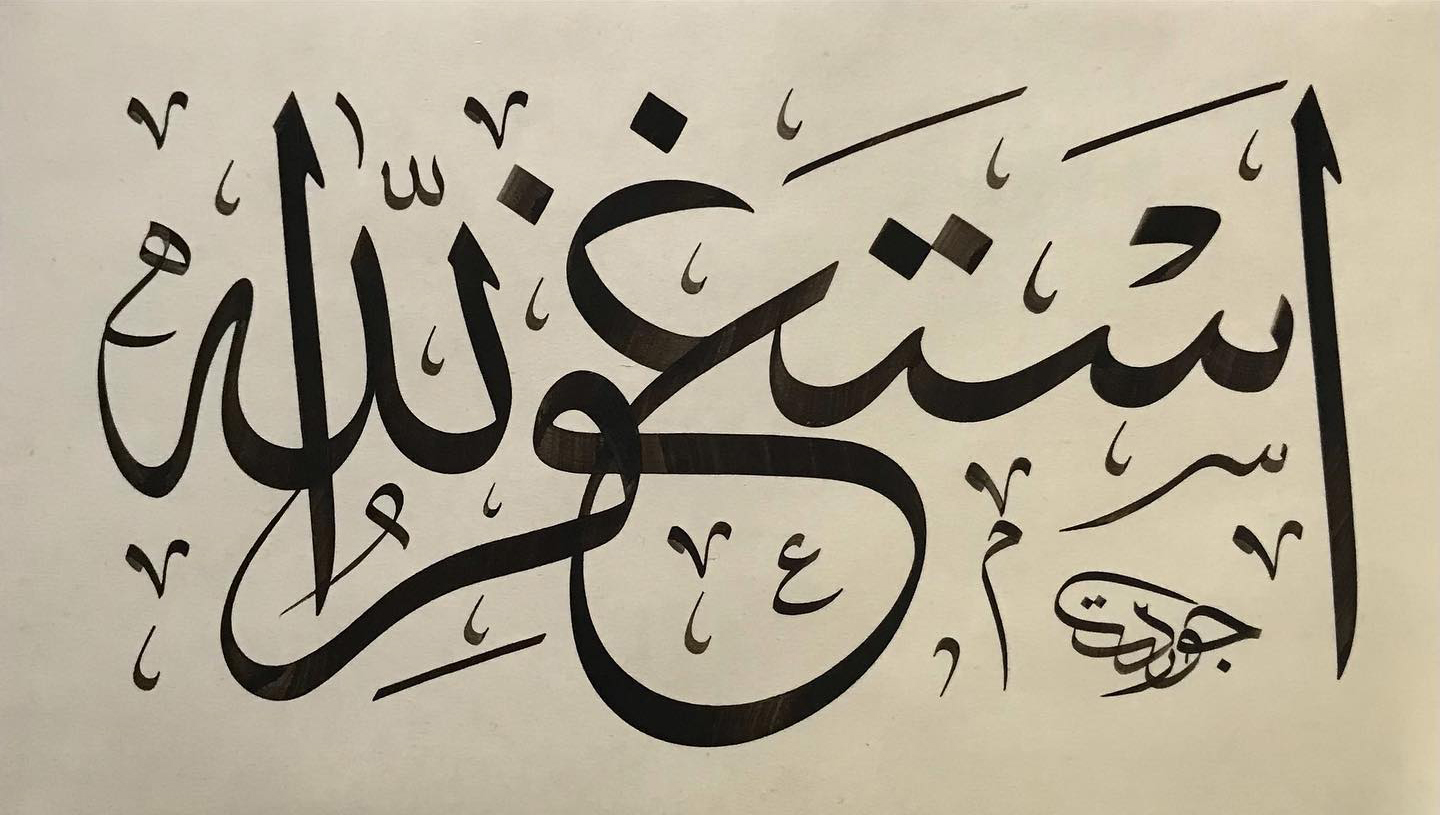 اَسْتَغفِرُ اللّٰه
جودت